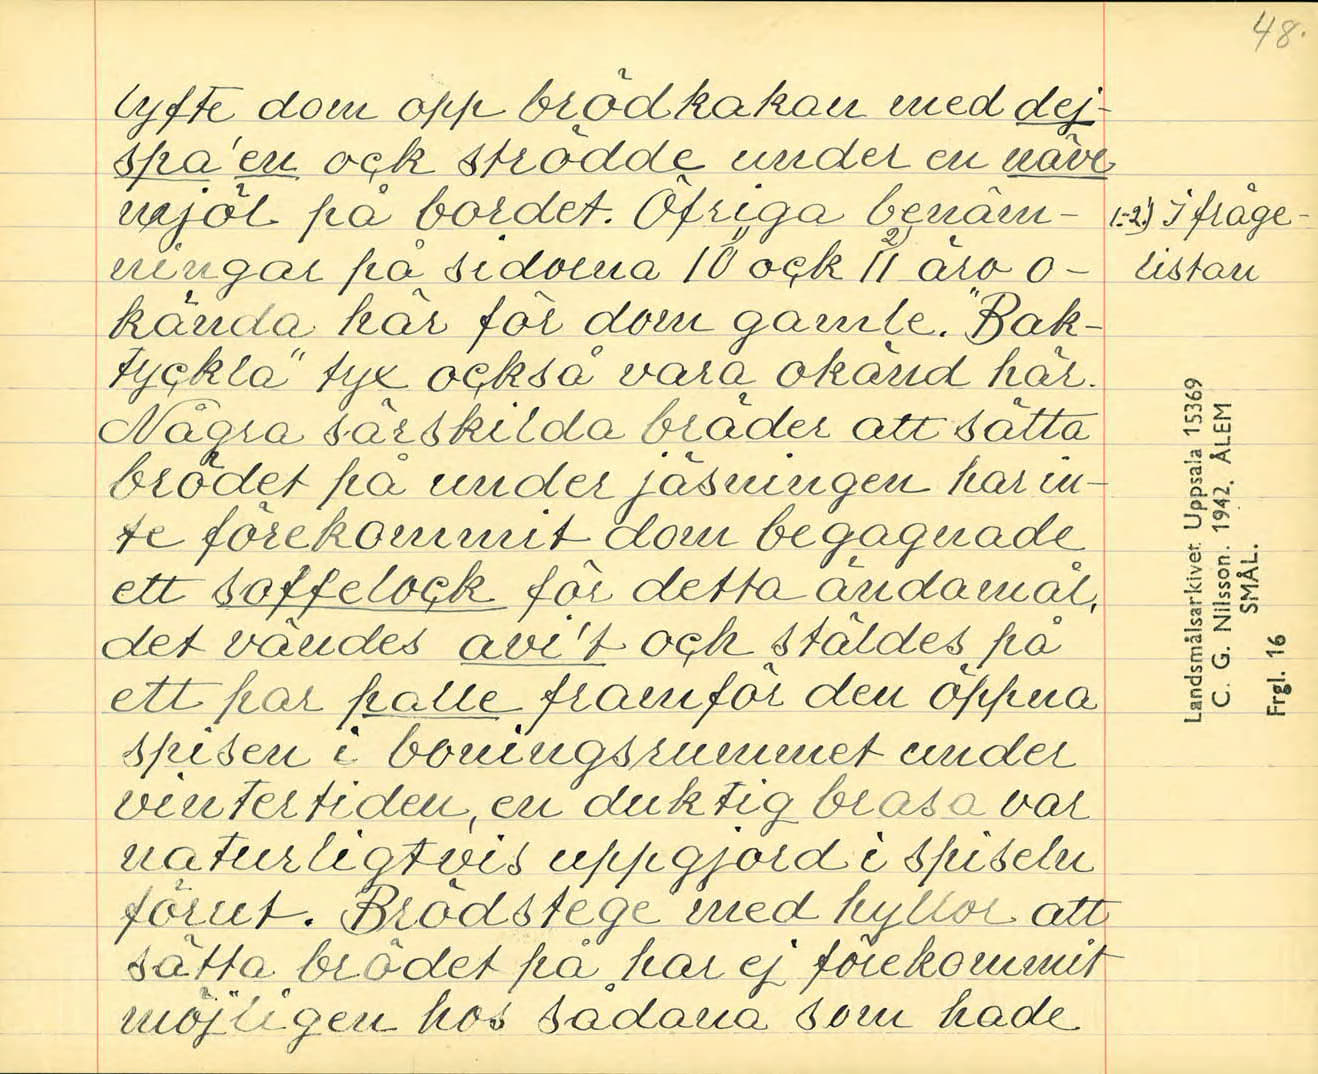 48.
lyfte dom opp brödkakan med dej-
spa'en oçk strödde under en näve
mjöl på bordet. Öfriga benäm-
ningar på sidorna 10 1) oçk 11 2) äro o-
kända här för dom gamle. "Bak-
tyçkla" tyx oçkså vara okänd här.
Några särskilda bräder att sätta
brödet på under jäsningen har in-
te förekommit dom begagnade
ett soffeloçk för detta ändamål,
det vändes avi't oçh stäldes på
ett par palle framför den öppna
spisen i boningsrummet under
vintertiden, en duktig brasa var
naturligtvis uppgjord i spiseln
förut. Brödstege med hyllor att
sätta brödet på har ej förekommit
möjligen hos sådana som hade
1.-2.) I fråge-
listan
Landsmålsarkivet Uppsala 15369
C. G. Nilsson. 1942. ÅLEM
SMÅL.
Frgl. 16